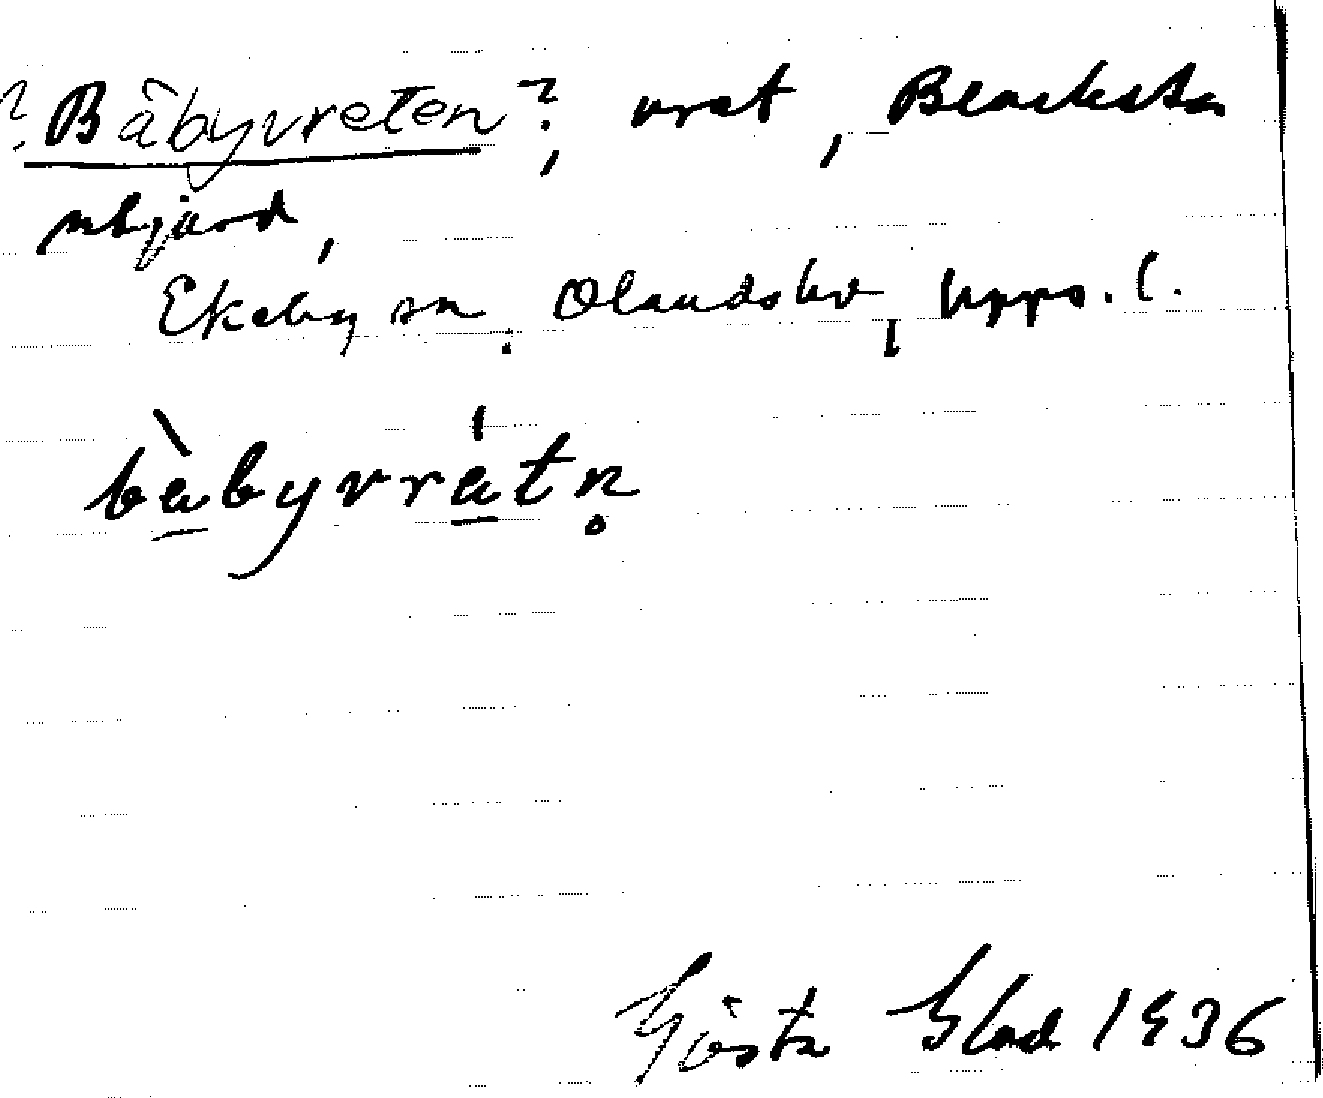 ? Båbyvreten ?, vret, Blacksta
utjord,
Ekeby sn. Olands hd, Upps. l.
bàbyvrátn̥
Gösta Blad 1936